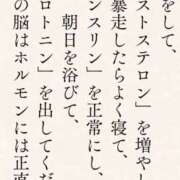 をして、
ストステロン」を増やし
暴走したらよく寝て、
ンスリン」を正常にし、
朝日を浴びて、
ロトニン」を出してくだ
の脳はホルモンには正直